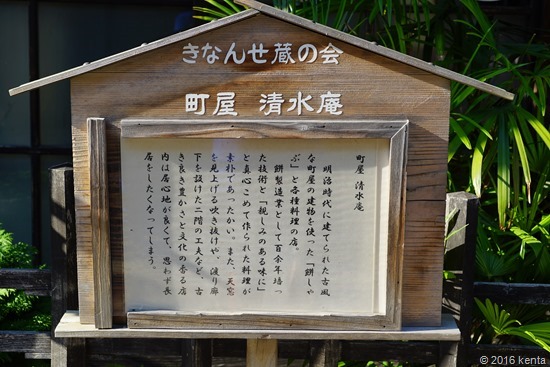 きなんせ蔵の会
町屋 清水庵
町屋 清水庵
明治時代に建てられた古風
な町屋の建物を使った「餅しゃ
ぶ」と各種料理の店。
餅製造業として百余年培っ
た技術と「親しみのある味に」
と真心こめて作られた料理が
素朴であったかい。また、天窓
を見上げる吹き抜けや、渡り廊
下を設けた二階の工夫など、古
き良き豊かさと文化の香る店
内は居心地が良くて、思わず長
居をしたくなってしまう。
© 2016 kenta